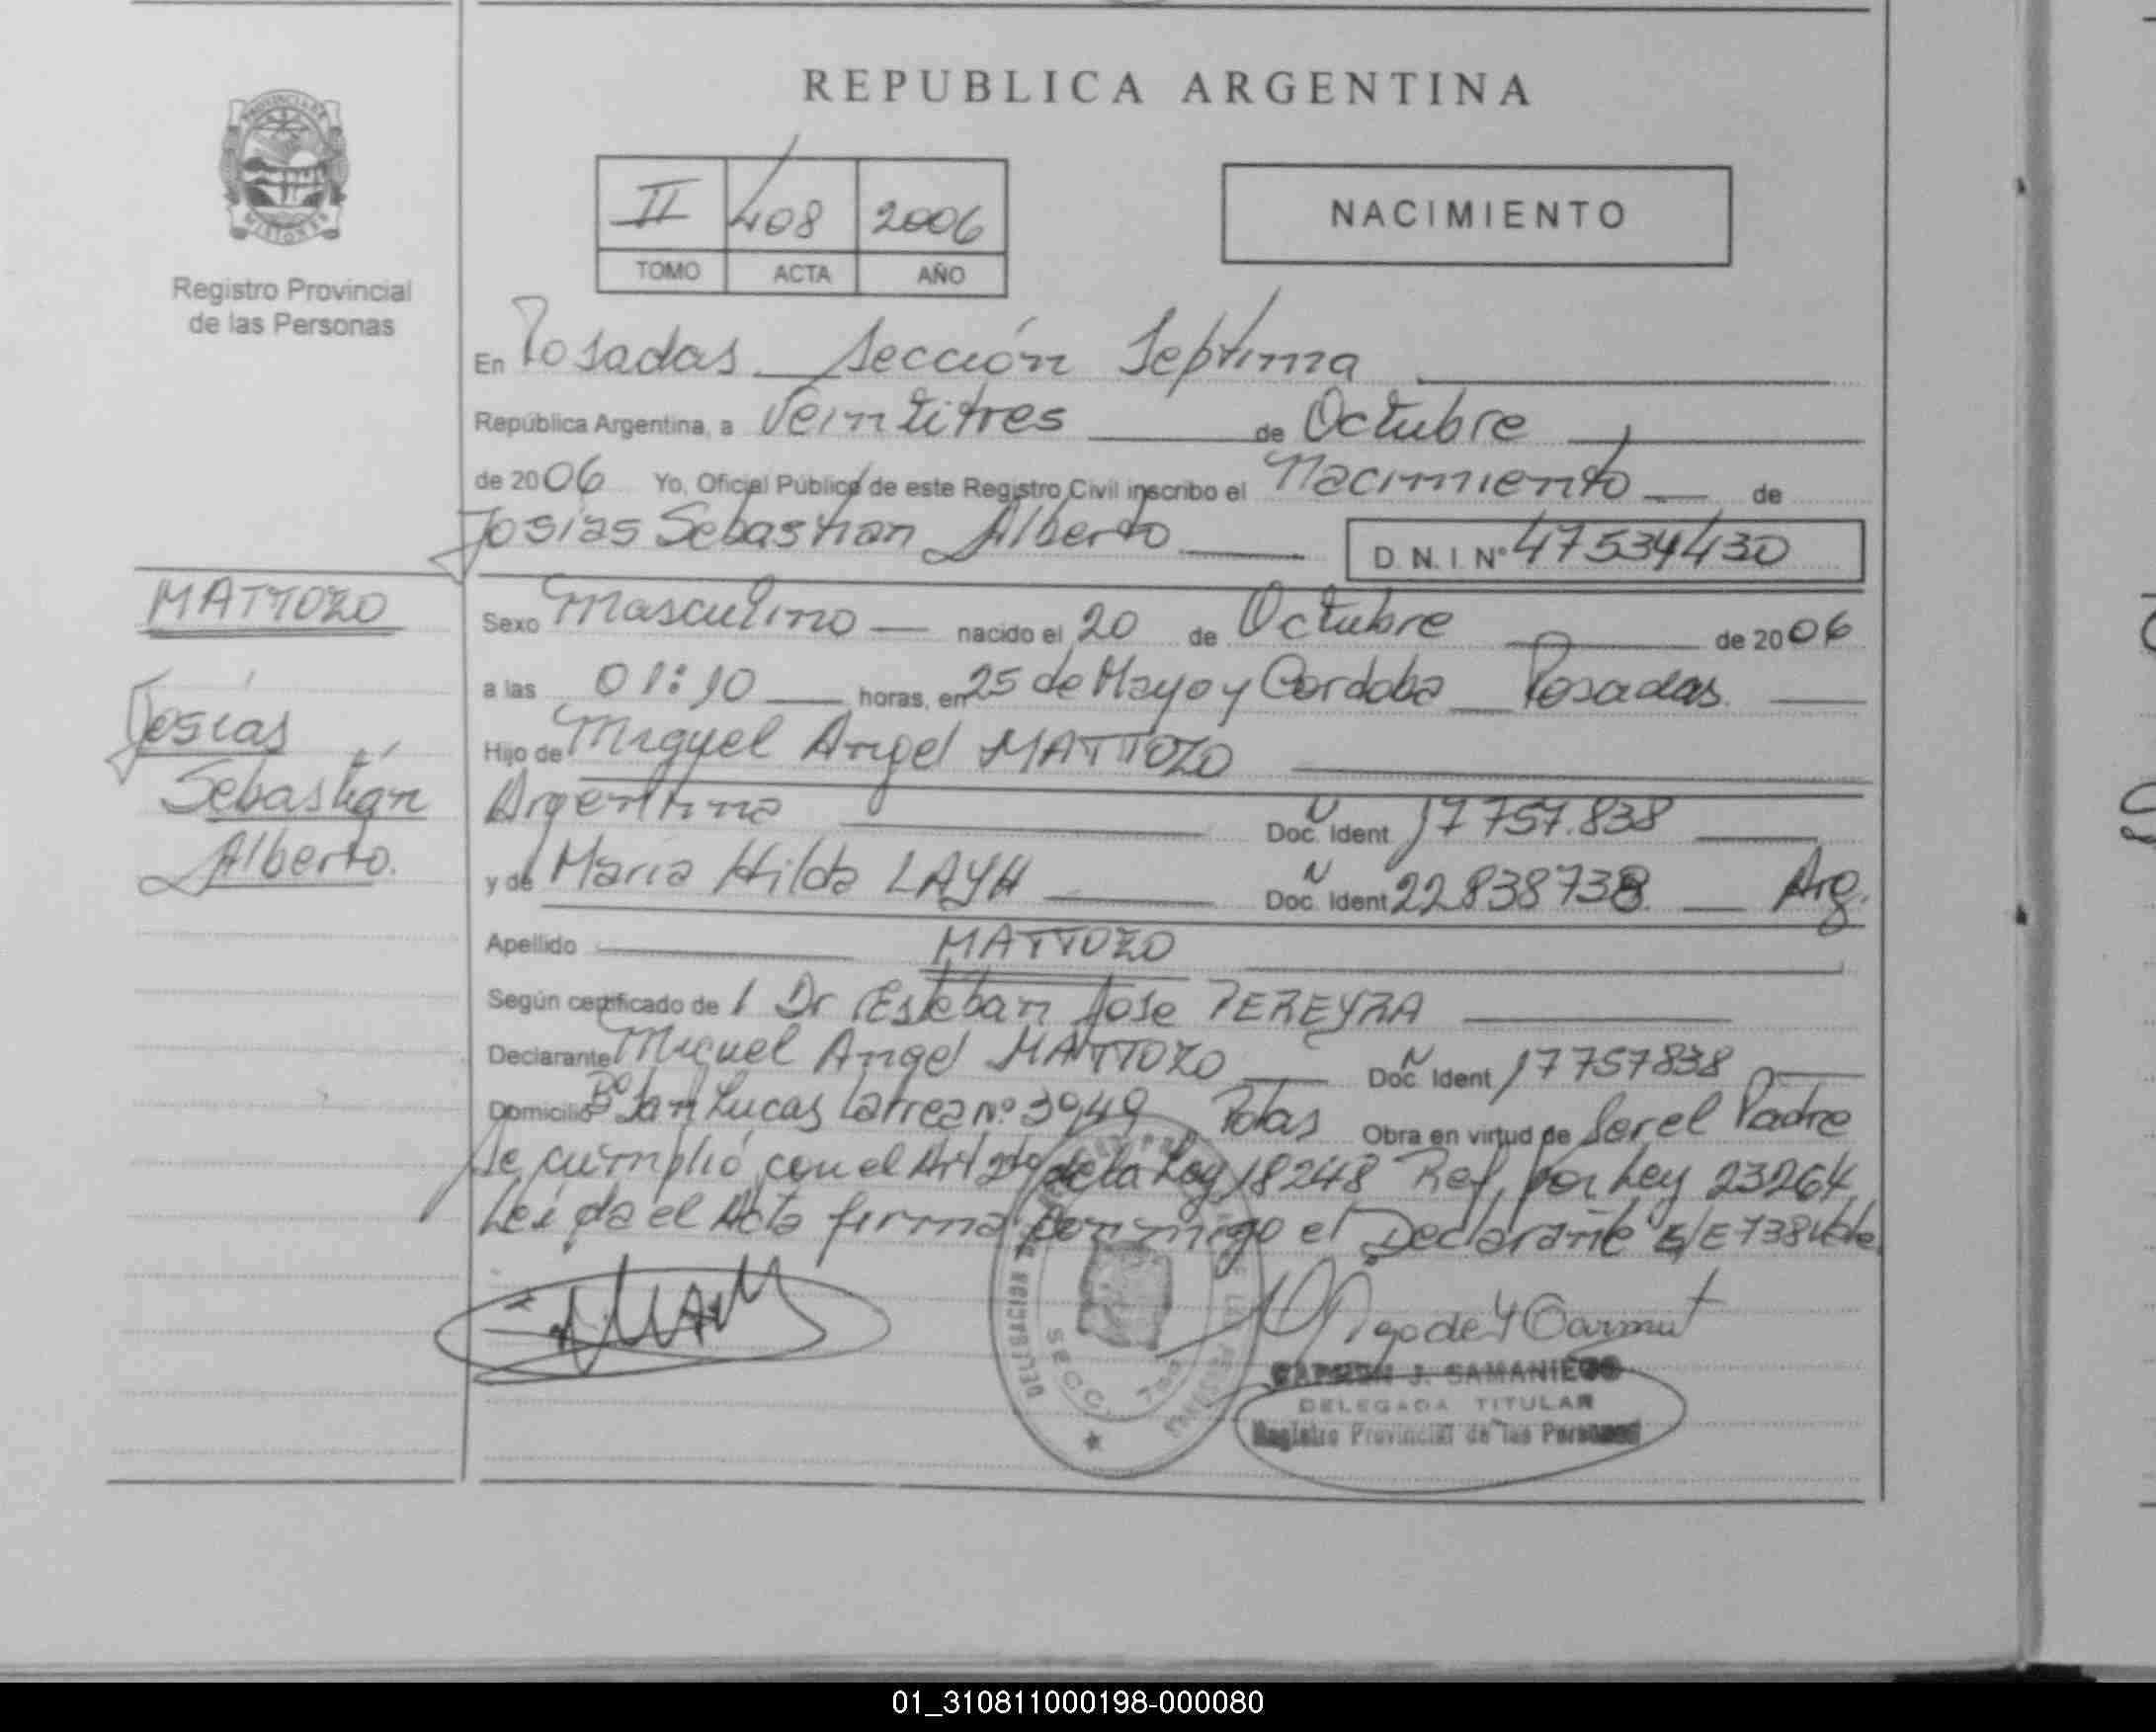 REPUBLICA ARGENTINA
PROVINCIA DE
MISIONES
Registro Provincial
de las Personas
II 408 2006
TOMO ACTA AÑO
NACIMIENTO
En Posadas Sección Septima
República Argentina, a Veintitres de Octubre
de 2006 Yo, Oficial Público de este Registro Civil inscribo el Nacimiento de
Josias Sebastian Alberto D.N.I. Nº 47534430
MATTOZO
Josias
Sebastián
Alberto.
Sexo Masculino nacido el 20 de Octubre de 2006
a las 01:10 horas, en 25 de Mayo y Cordoba Posadas.
Hijo de Miguel Angel MATTOZO
Argentina Doc. Ident 17757.838
y de Maria Hilda LAYH Doc. Ident 22838738 Arg.
Apellido MATTOZO
Según certificado de Dr Esteban Jose PEREYRA
Declarante Miguel Angel MATTOZO Doc. Ident 17757838
Domicilio Bº San Lucas Larrea nº 3949 Pdas Obra en virtud de Ser el Padre
Se cumplió con el Art 2do de la Ley 18248 Ref. por Ley 23264
Leida el Acta firma conmigo el Declarante E/E 738 Vale
SECC.
CARMEN J. SAMANIEGO
DELEGADA TITULAR
Registro Provincial de las Personas
01_310811000198-000080